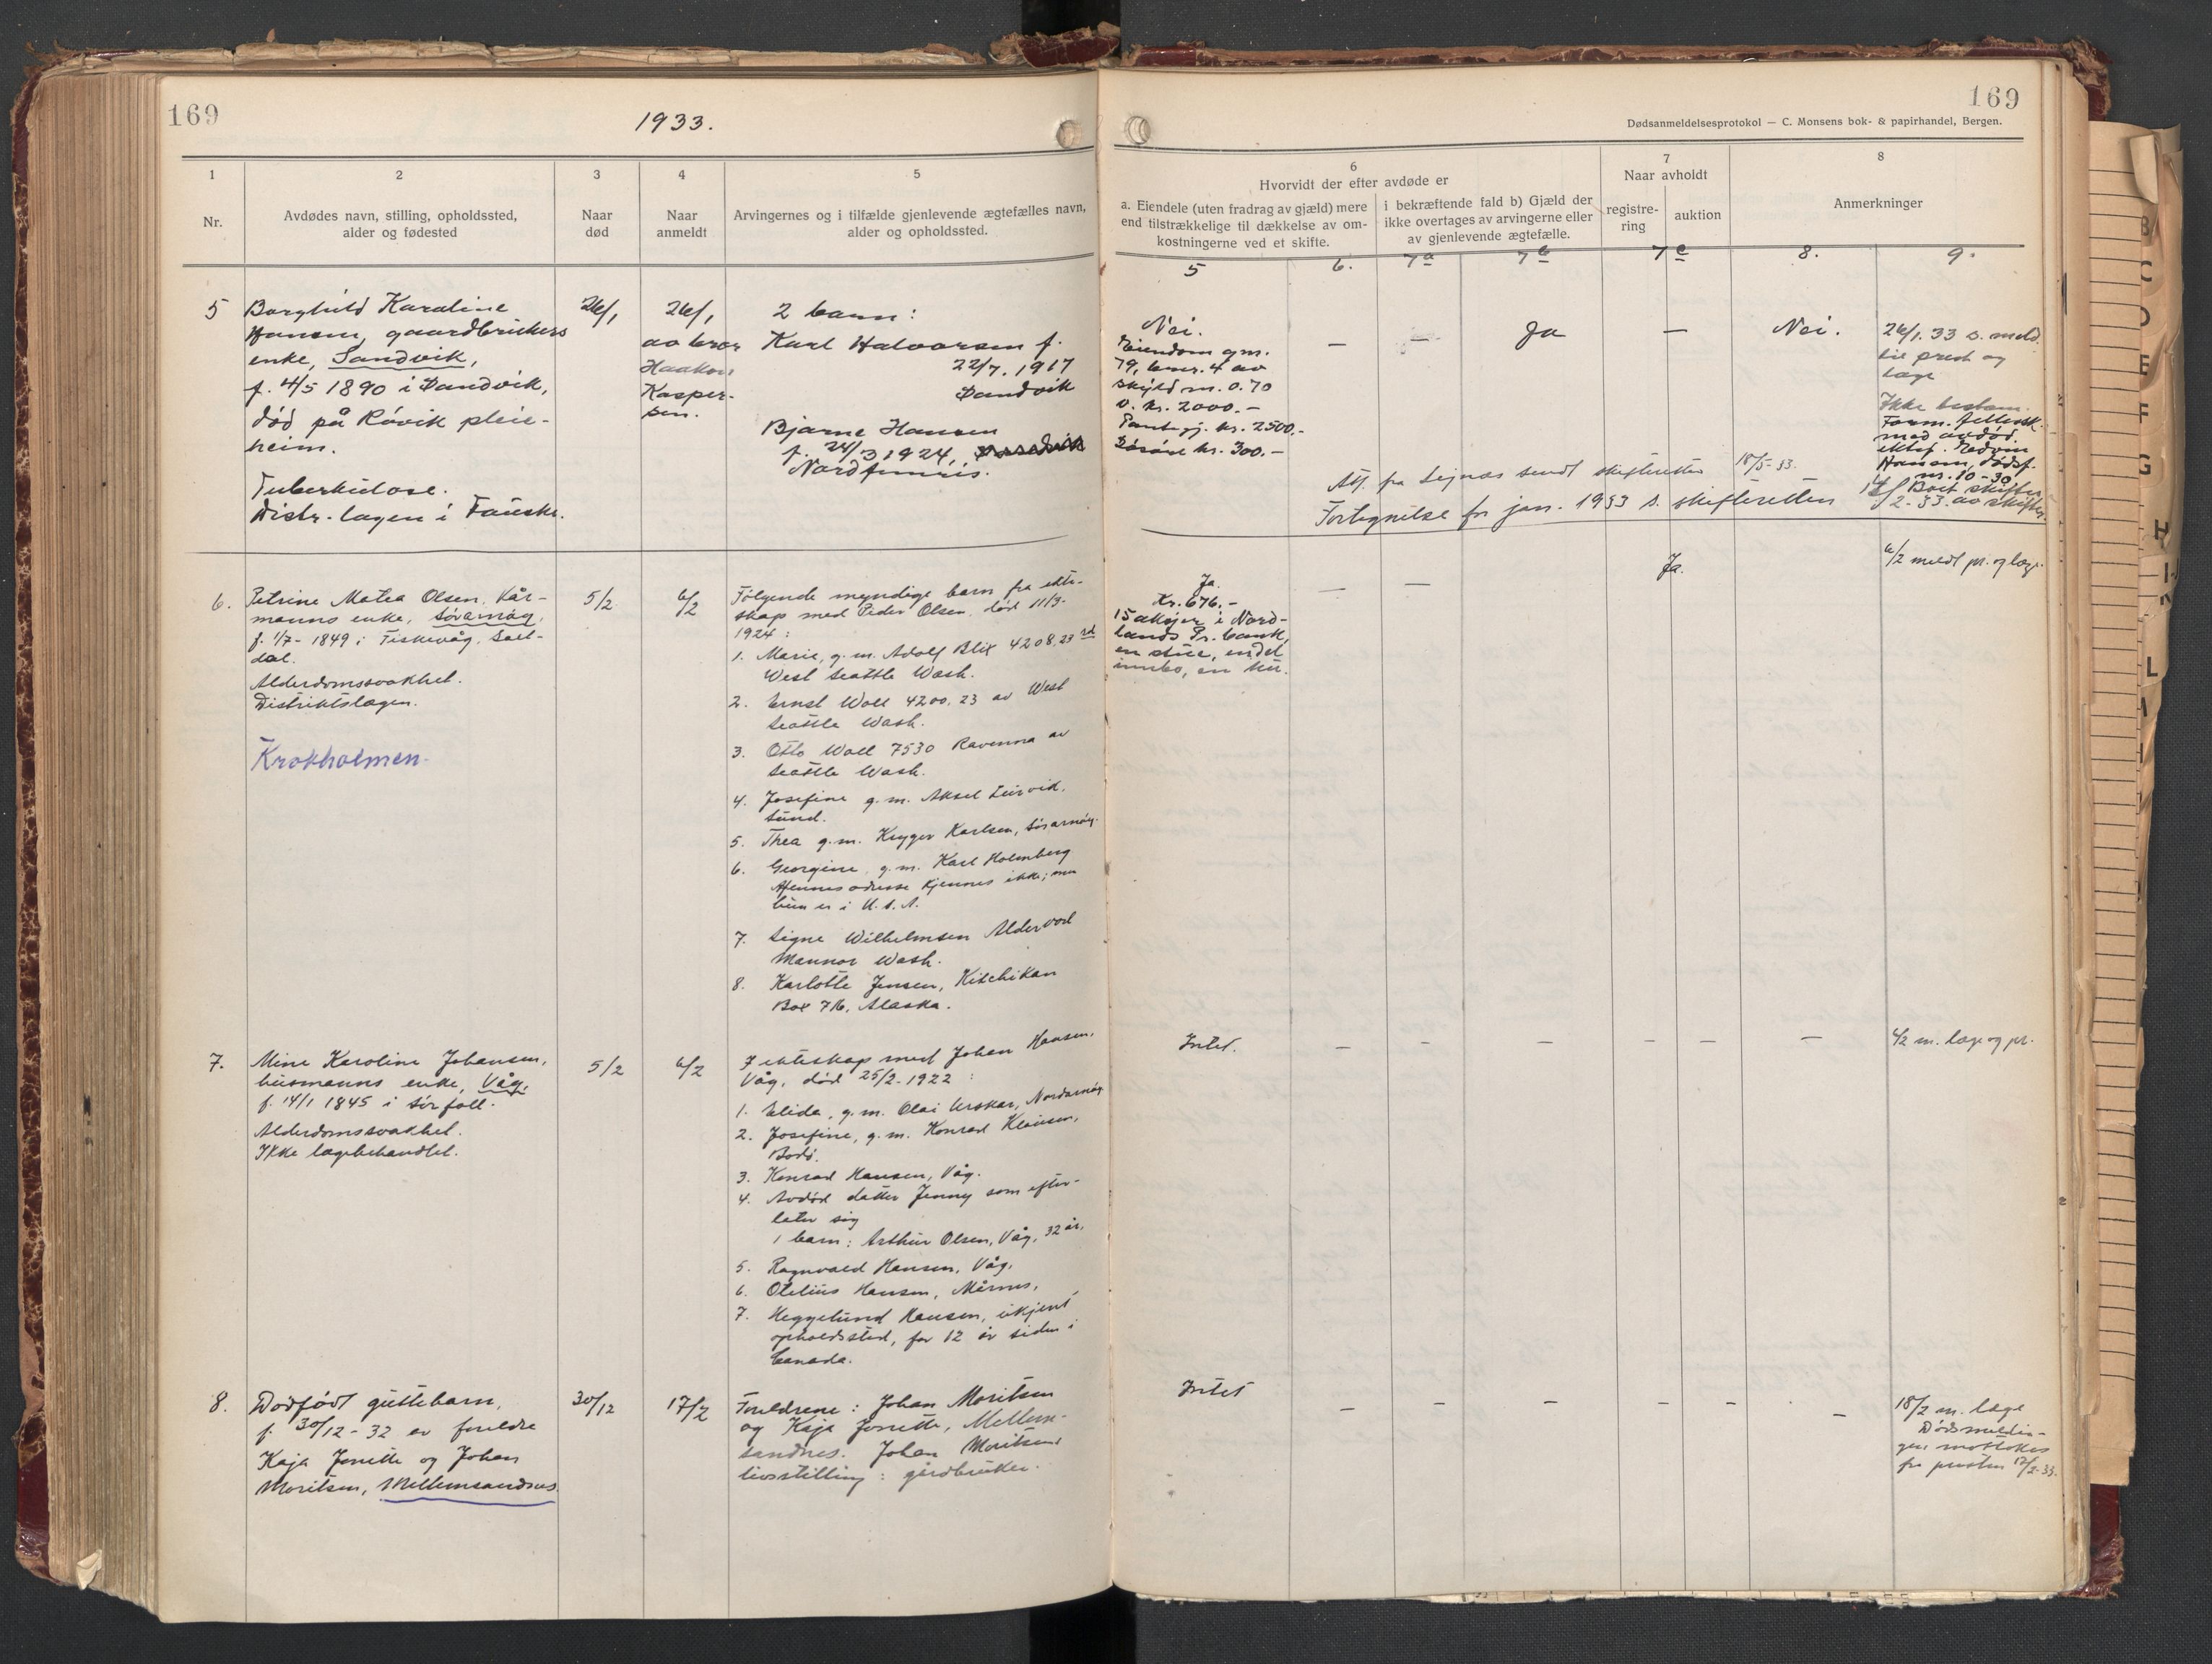 169
1933.
1
2
3
4
5
Nr.
Avdødes navn, stilling, opholdssted,
alder og fødested
Naar
død
Naar
anmeldt
Arvingernes og i tilfælde gjenlevende ægtefælles navn,
alder og opholdssted.
5
Borghild Karoline
Hansen, gaardbrukers
enke, Sandvik,
f. 4/5 1890 i Sandvik,
død på Røvik pleie-
heim.
Tuberkulose.
Distr. lægen i Fauske.
26/1
26/1
av bror
Haakon
Kasper-
sen.
2 barn:
Karl Halvorsen f.
22/7. 1917
Sandvik
Bjarne Hansen
f. 24/3 1924,
6.
Petrine Matea Olsen, kår-
manns enke, Sørarnøy,
f. 1/7- 1849 i Fiskevåg, Salt-
dal.
Alderdomssvakhet.
Distriktslægen.
Krokholmen.
5/2
6/2
Følgende myndige barn fra ekte-
skap med Peder Olsen, død 11/3-
1924:
1. Marie, g.m. Adolf Blix 4208, 23rd
West Seattle Wash.
2. Ernst Woll 4200, 23 av West
Seattle Wash.
3. Otto Woll 7530 Ravenna av
Seattle Wash.
4. Josefine g.m. Aksel Leirvik,
Sund.
5. Thea g.m. Krÿger Karlsen, Sørarnøy.
6. Georgine g.m. Karl Holmberg
Hennes adresse kjennes ikke; men
hun er i U.S.A.
7. Signe Wilhelmsen Alder
Mannor Wash.
8. Karlotte Jensen, Kitchikan
Box 716, Alaska.
7.
Mine Karoline Johansen,
husmanns enke, Våg,
f. 14/1 1845 i Sørfoll.
Alderdomssvakhet.
Ikke lægebehandlet.
5/2
6/2
I ekteskap med Johan Hansen,
Våg, død 25/2-1922:
1. Elida, g.m. Olai Urskar, Nordarnøy
2. Josefine, g.m. Konrad Klausen,
Bodø.
3. Konrad Hansen, Våg.
4. Avdød datter Jenny som efter-
later sig
1 barn: Arthur Olsen, Våg, 32 år,
5. Ragnvald Hansen, Våg,
6. Otelius Hansen, Mårnes,
7. Heggelund Hansen, ukjent
opholdssted, for 12 år siden i
Canada.
8.
Dødfødt guttebarn,
f. 30/12-32 av foreldre
Kaja Jonette og Johan
Moritsen, Mellemsandnes
30/12
17/2
Foreldrene: Johan Moritsen
og Kaja Jonette, Mellem-
sandnes. Johan Moritsens
livsstilling: gårdbruker.
169
Dødsanmeldelsesprotokol — C. Monsens bok- & papirhandel, Bergen.
6
Hvorvidt der efter avdøde er
a. Eiendele (uten fradrag av gjæld) mere
end tilstrækkelige til dækkelse av om-
kostningerne ved et skifte.
i bekræftende fald b) Gjæld der
ikke overtages av arvingerne eller
av gjenlevende ægtefælle.
7
Naar avholdt
registre-
ring
auktion
8
Anmerkninger
5
6.
7a
7b
7c
8.
9.
Nei.
Eiendom g.nr.
79, bnr. 4 av
skyld m. 0.70
v. kr. 2000.-
Pantegj. kr. 2500.-
Løsøre kr. 300.-
—
—
Ja
—
Nei.
26/1. 33 s. meld.
til prest og
læge
Ikke bestem.
Form. fellessk.
med avdød.
ektef. Edvin
Hansen, dødsf.
nr. 10-30.
Att. fra Lignes sendt skifteretten 18/5-33.
Fortegnelse for jan. 1933 s. skifteretten
Ja.
Kr. 676.-
15 aksjer i Nord-
lands Pr. bank,
en stue, endel
innbo, en ku.
—
—
Ja.
6/2 meldt pr. og læge.
Intet.
—
—
—
—
—
—
6/2 m. læge og pr.
Intet
—
—
—
—
—
—
18/2 m. læge
Dødsmeldin-
gen mottokes
fra presten 17/2-33.